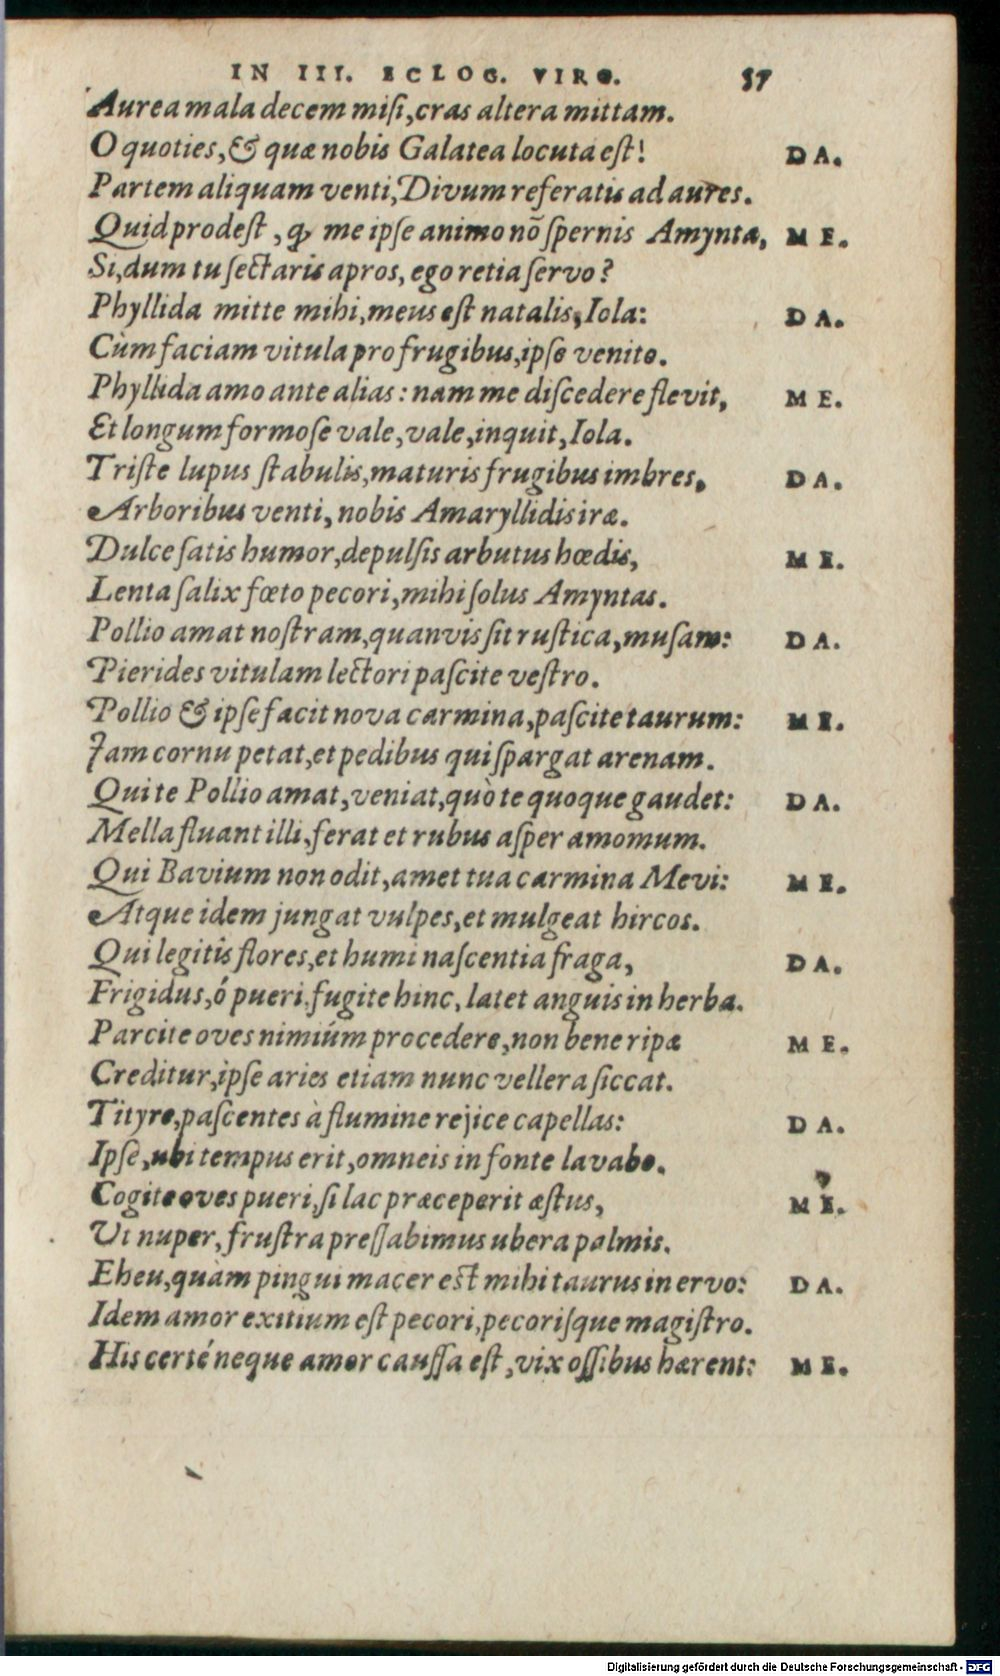 IN III. ECLOG. VIRG. 57
Aurea mala decem misi, cras altera mittam.
O quoties, & quæ nobis Galatea locuta est! DA.
Partem aliquam venti, Divum referatis ad aures.
Quid prodest, qꝫ me ipse animo nõ spernis Amynta, ME.
Si, dum tu sectaris apros, ego retia servo?
Phyllida mitte mihi, meus est natalis, Iola: DA.
Cùm faciam vitula pro frugibus, ipse venito.
Phyllida amo ante alias: nam me discedere flevit, ME.
Et longum formose vale, vale, inquit, Iola.
Triste lupus stabulis, maturis frugibus imbres, DA.
Arboribus venti, nobis Amaryllidis iræ.
Dulce satis humor, depulsis arbutus hœdis, ME.
Lenta salix fœto pecori, mihi solus Amyntas.
Pollio amat nostram, quanvis sit rustica, musam: DA.
Pierides vitulam lectori pascite vestro.
Pollio & ipse facit nova carmina, pascite taurum: ME.
Jam cornu petat, et pedibus qui spargat arenam.
Qui te Pollio amat, veniat, quò te quoque gaudet: DA.
Mella fluant illi, ferat et rubus asper amomum.
Qui Bavium non odit, amet tua carmina Mevi: ME.
Atque idem jungat vulpes, et mulgeat hircos.
Qui legitis flores, et humi nascentia fraga, DA.
Frigidus, ó pueri, fugite hinc, latet anguis in herba.
Parcite oves nimiúm procedere, non bene ripæ ME.
Creditur, ipse aries etiam nunc vellera siccat.
Tityre, pascentes à flumine rejice capellas: DA.
Ipse, ubi tempus erit, omneis in fonte lavabo.
Cogite oves pueri, si lac præceperit æstus, ME.
Ut nuper, frustra pressabimus ubera palmis.
Eheu, quàm pingui macer est mihi taurus in ervo: DA.
Idem amor exitium est pecori, pecorisque magistro.
His certé neque amor caussa est, vix ossibus hærent: ME.
Digitalisierung gefördert durch die Deutsche Forschungsgemeinschaft - DFG